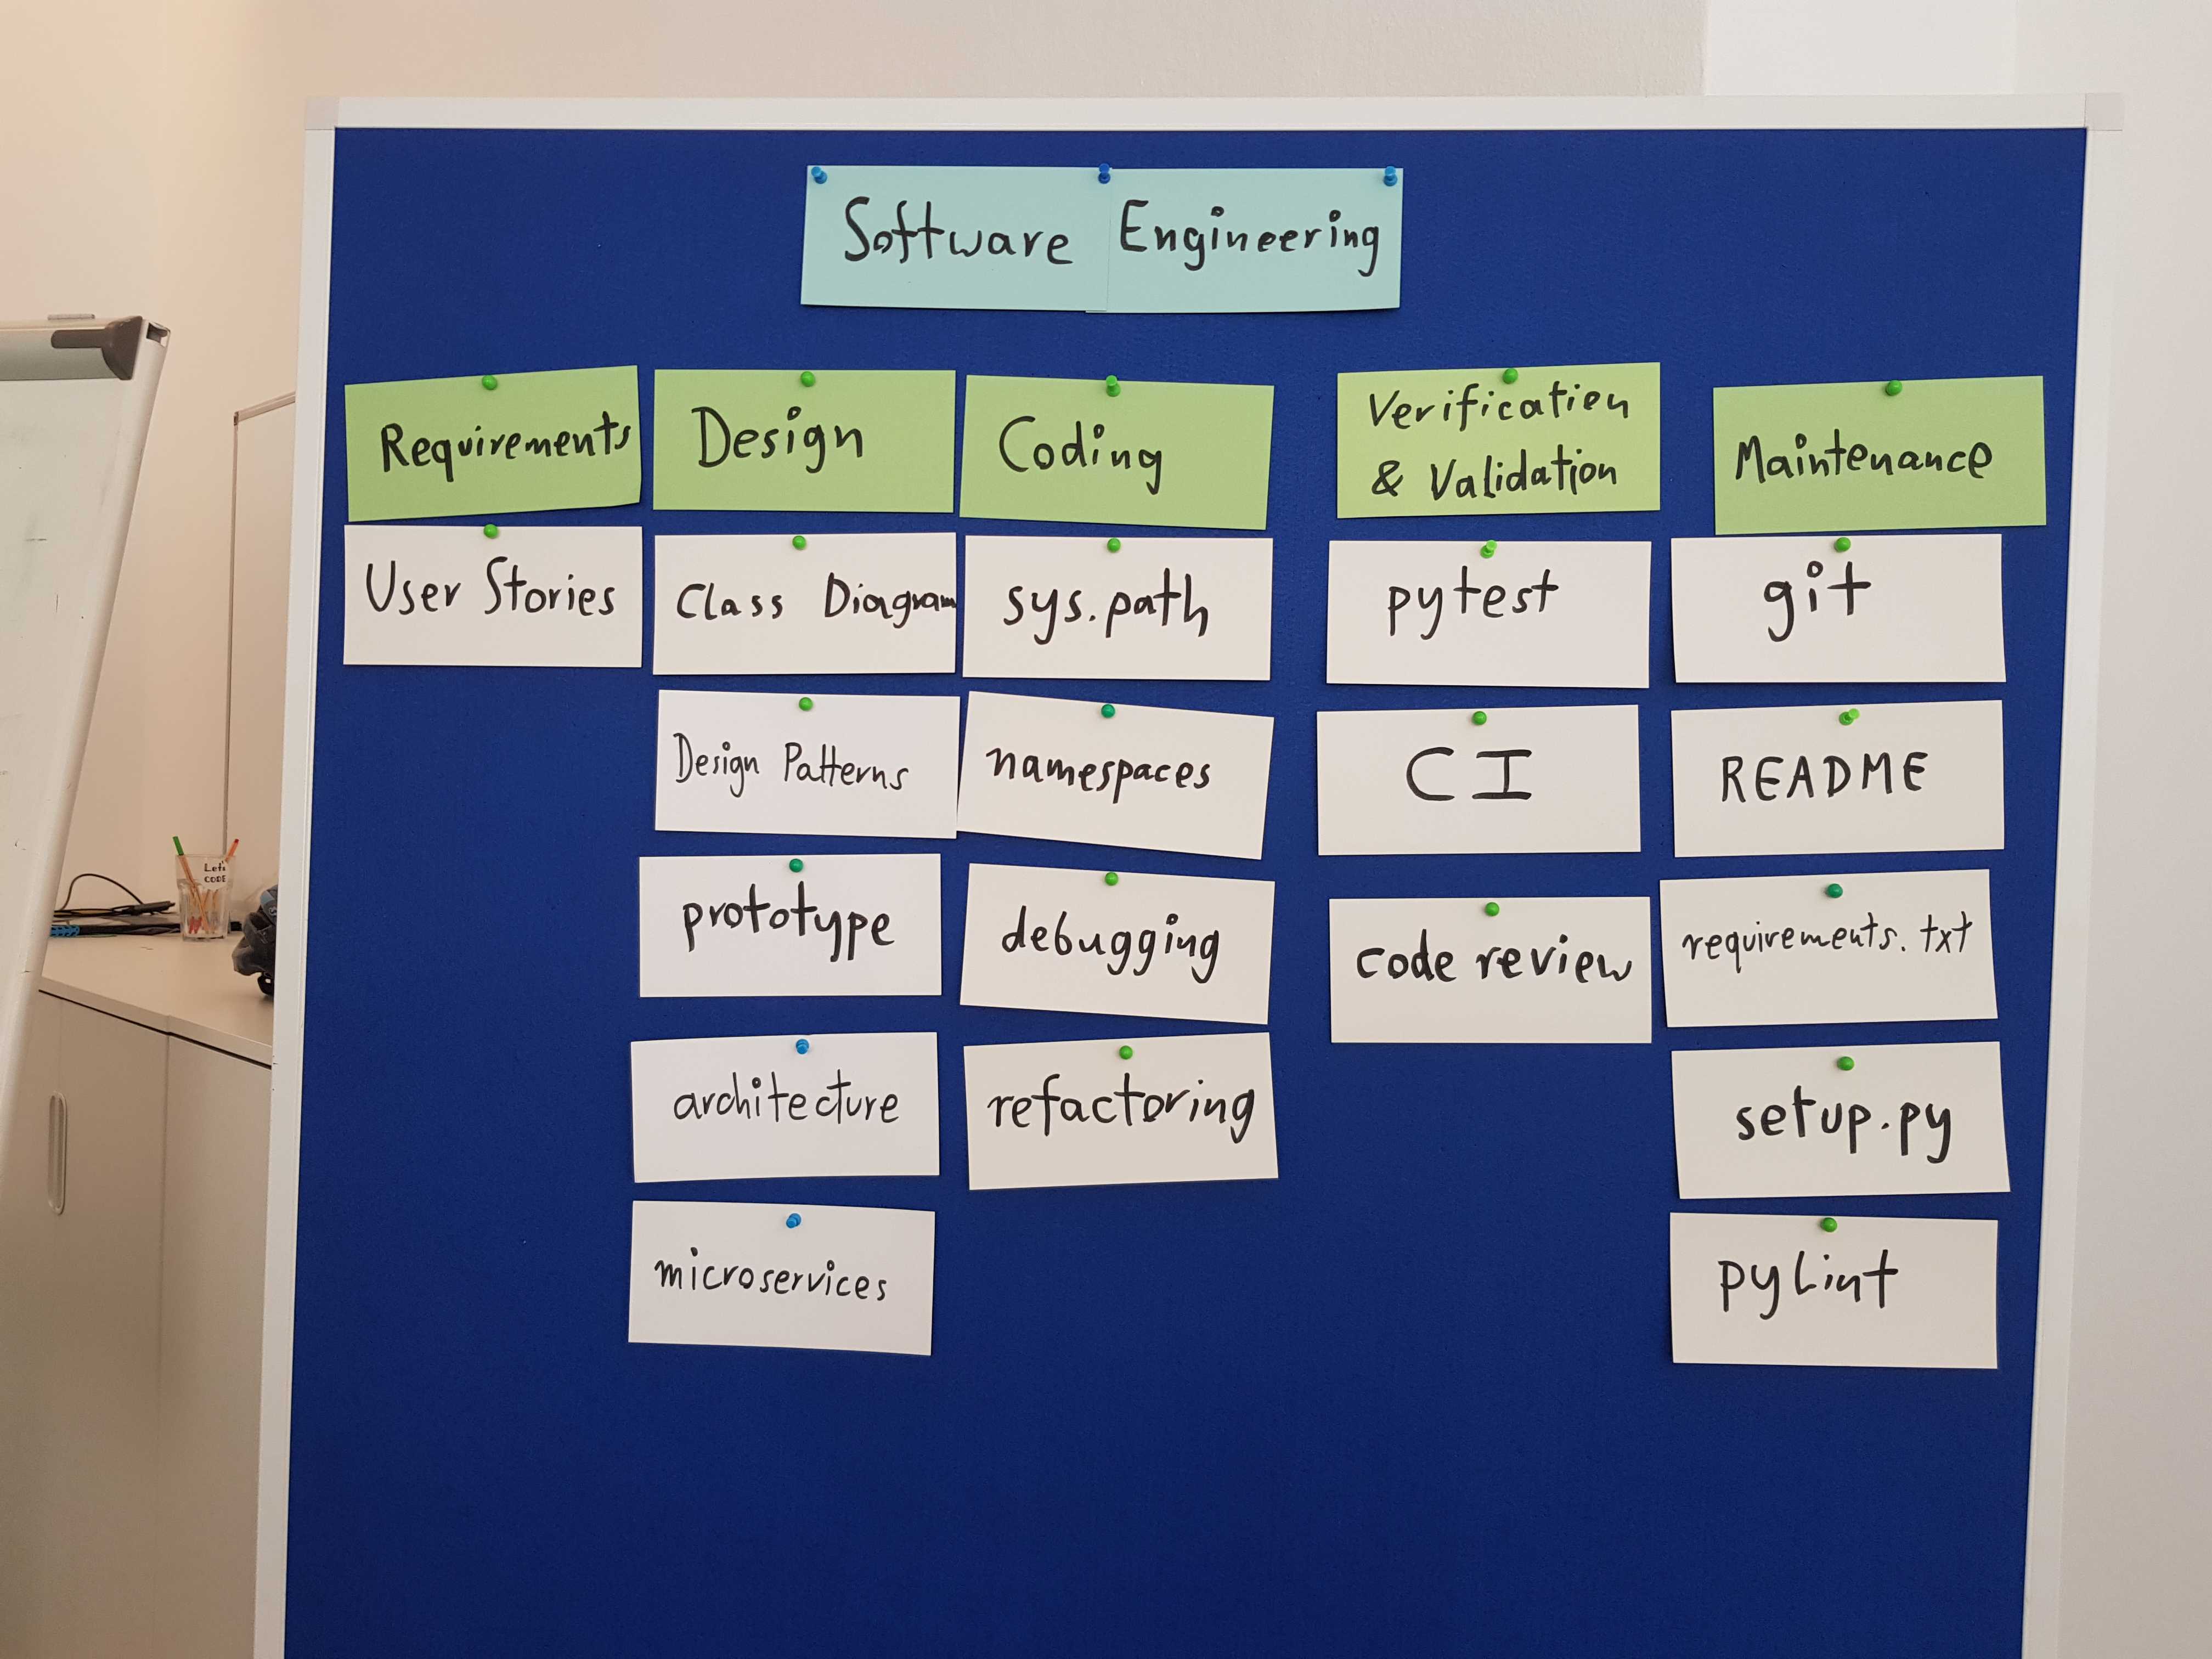 Software Engineering
Requirements
User Stories
Design
Class Diagram
Design Patterns
prototype
architecture
microservices
Coding
sys.path
namespaces
debugging
refactoring
Verification
& Validation
pytest
CI
code review
Maintenance
git
README
requirements.txt
setup.py
pyLint
Let's
CODE